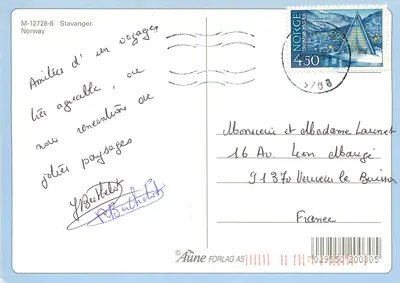 M-12728-8 Stavanger.
Norway
Amitiés d'un voyage
très agréable, où
nous rencontrons de
jolies paysages
J Berthelot
Berthelot
NORGE
4.50
Monsieur et Madame Launet
16 Av. Léon Maugé
91370 Verrières le Buisson
France
Aune FORLAG AS
7029550200305